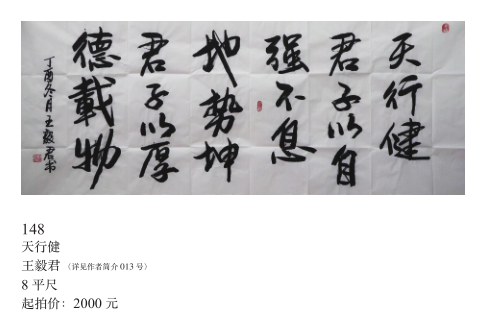 天行健
君子以自
强不息
地勢坤
君子以厚
德載物
丁酉冬月王毅君书
148
天行健
王毅君 （详见作者简介 013 号）
8 平尺
起拍价：2000 元